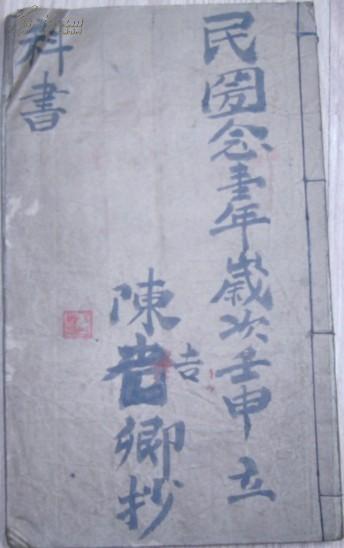 民國念壹年歲次壬申立
陳吉卿抄
科書